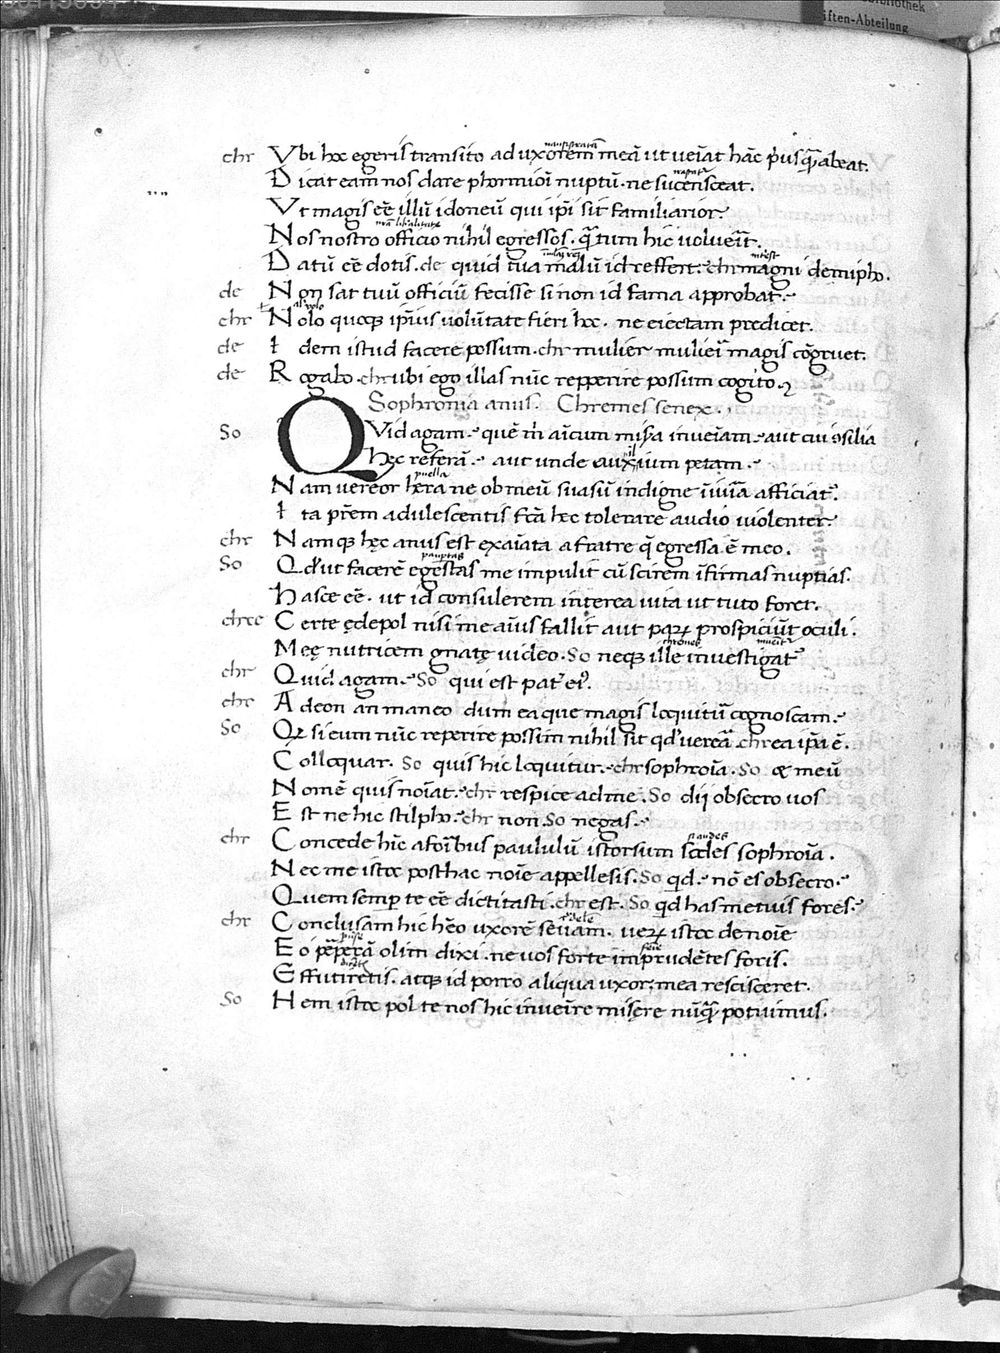 chr Vbi hoc egeris transito ad uxorem meā ut ueīat hāc priusq̄ abeat.
Dicat eam nos dare phormioī nuptū. ne sucensceat.
Vt magis eē illū idoneū qui ip̄i sit familiarior.
Nos nostro officio nihil egressos. q̄tum hic uoluerīt.
Datū eē dotis. de quid tua malū id reffert. chr magni demipho.
de Non sat tuū officiū fecisse si non id fama approbat.
chr Nolo quoqȝ ip̄ius uolūtate fieri hoc. ne eiectam predicet.
de Idem istud facere possum. chr mulier mulieri magis cōgruet.
de Rogabo. chr ubi ego illas nūc repperire possum cogito.
Sophronia anus. Chremes senex.
So QVid agam. quē m̄ aīcum misa inueīam. aut cui ɔsilia
hęc referā. aut unde auxilium petam.
Nam uereor hera ne ob meū suasū indigne īiuīa afficiat᷑.
Ita pr̄em adulescentis fc̄a hec tolerare audio uiolenter.
chr Namqȝ hęc anus est exaīata a fratre q̄ egressa ē meo.
So Qd' ut facerē egestas me impulit cū scirem īfirmas nuptias.
Hasce eē. ut id consulerem interea uita ut tuto foret.
chre Certe ędepol nisi me aīus fallit aut parū prospiciūt oculi.
Meę nutricem gnatę uideo. So neqȝ ille inuestigat᷑
chr Quid agam. So qui est pat᷑ ei᷒.
chr Adeon an maneo dum ea que magis loquitū cognoscam.
So Qȝ si eum nūc reperire possim nihil sit qd' uereā. chr ea ip̄a ē.
Colloquar. So quis hic loquitur. chr sophroīa. So & meū
Nomē quis noīat. chr respice ad me. So dii obsecro uos
Est ne hic stilpho. chr non. So negas.
chr Concede hīc a forībus paululū istorsum sodes sophroīa.
Nec me istoc posthac noīe appellesis. So qd. nō es obsecro.
Quem semp̱ te eē dictitasti. chr est. So qd has metuis fores.
chr Conclusam hic hēo uxorē seuam. uerȝ istoc de noīe
Eo perperā olim dixi. ne uos forte imprudētes foris.
Effutiretis. atqȝ id porro aliqua uxor mea rescisceret.
So Hem istoc pol te nos hic inueīre misere nūq̄ potuimus.